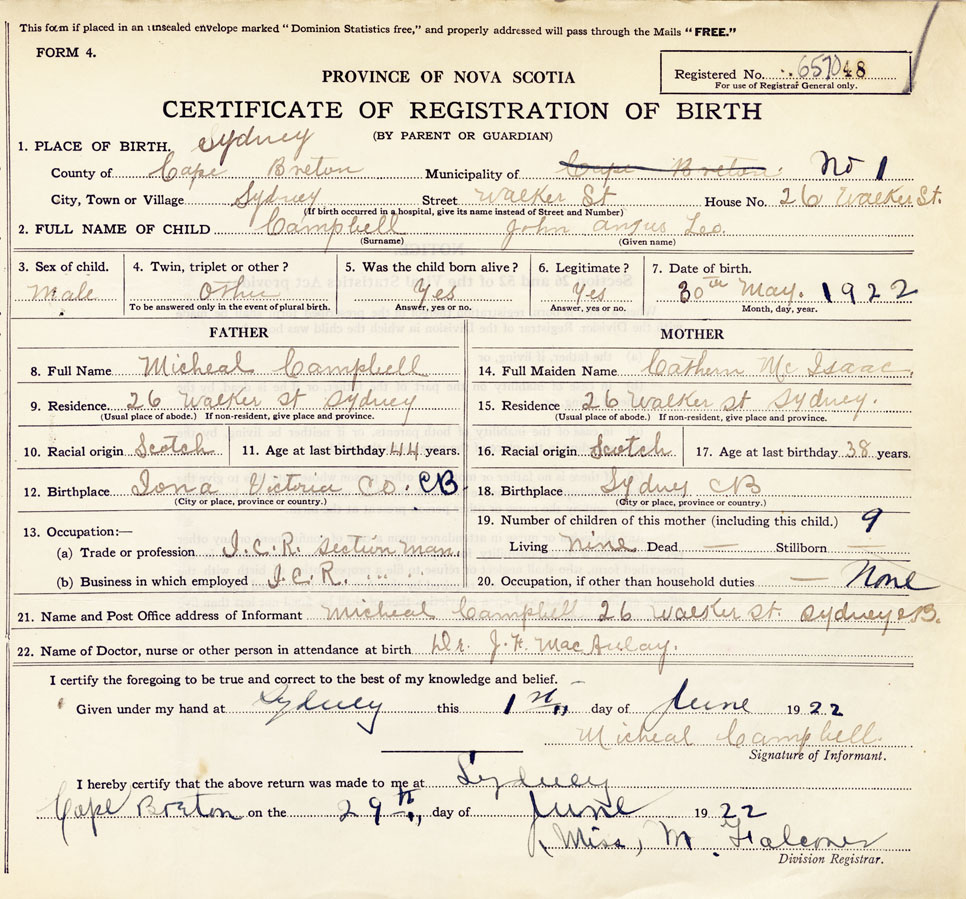 This form if placed in an unsealed envelope marked "Dominion Statistics free," and properly addressed will pass through the Mails "FREE."
FORM 4.
PROVINCE OF NOVA SCOTIA
Registered No. 657048
For use of Registrar General only.
CERTIFICATE OF REGISTRATION OF BIRTH
(BY PARENT OR GUARDIAN)
1. PLACE OF BIRTH. Sydney
County of Cape Breton Municipality of Cape Breton No 1
City, Town or Village Sydney Street Walker St House No. 26 Walker St.
(If birth occurred in a hospital, give its name instead of Street and Number)
2. FULL NAME OF CHILD Campbell John Angus Leo.
(Surname) (Given name)
3. Sex of child. 4. Twin, triplet or other? 5. Was the child born alive? 6. Legitimate? 7. Date of birth.
Male Other Yes Yes 30th May. 1922
To be answered only in the event of plural birth. Answer, yes or no. Answer, yes or no. Month, day, year.
FATHER MOTHER
8. Full Name Micheal Campbell 14. Full Maiden Name Cathern Mc Isaac.
9. Residence. 26 Walker St Sydney 15. Residence 26 Walker St Sydney.
(Usual place of abode.) If non-resident, give place and province. (Usual place of abode.) If non-resident, give place and province.
10. Racial origin Scotch 11. Age at last birthday 44 years. 16. Racial origin Scotch 17. Age at last birthday 38 years.
12. Birthplace Iona Victoria Co. CB 18. Birthplace Sydney CB
(City or place, province or country.) (City or place, province or country.)
13. Occupation:— 19. Number of children of this mother (including this child.) 9
(a) Trade or profession I.C.R. Section Man. Living Nine Dead — Stillborn —
(b) Business in which employed I.C.R. 20. Occupation, if other than household duties — None
21. Name and Post Office address of Informant Micheal Campbell 26 Walker St. Sydney CB.
22. Name of Doctor, nurse or other person in attendance at birth Dr. J. H. MacAulay.
I certify the foregoing to be true and correct to the best of my knowledge and belief.
Given under my hand at Sydney this 1st day of June 1922
Micheal Campbell.
Signature of Informant.
I hereby certify that the above return was made to me at Sydney
Cape Breton on the 29th day of June 1922
Miss, M. Falconer
Division Registrar.